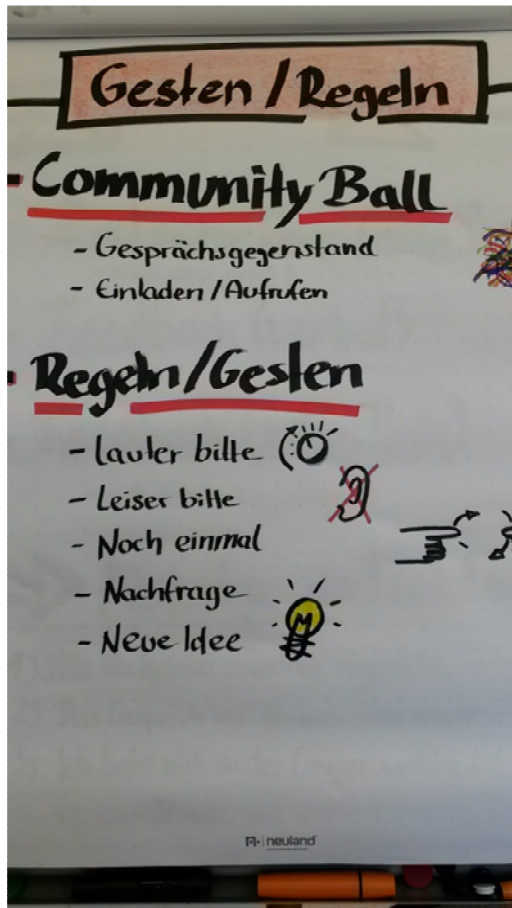 Gesten / Regeln
Community Ball
- Gesprächsgegenstand
- Einladen / Aufrufen
Regeln/Gesten
- Lauter bitte
- Leiser bitte
- Noch einmal
- Nachfrage
- Neue Idee
neuland